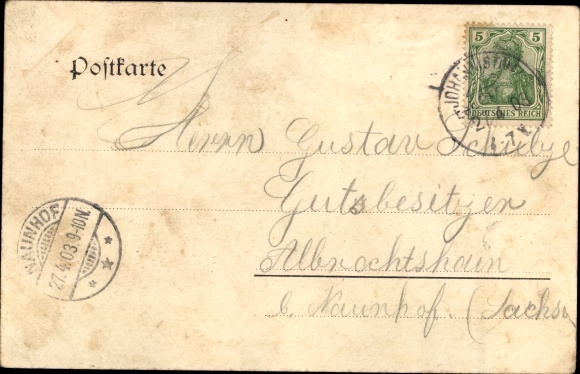 Postkarte
5 5
DEUTSCHES REICH
Herrn Gustav Schulze
Gutsbesitzer
Albrechtshain
b. Naunhof (Sachsen
NAUNHOF
27.4.03.9-10N.